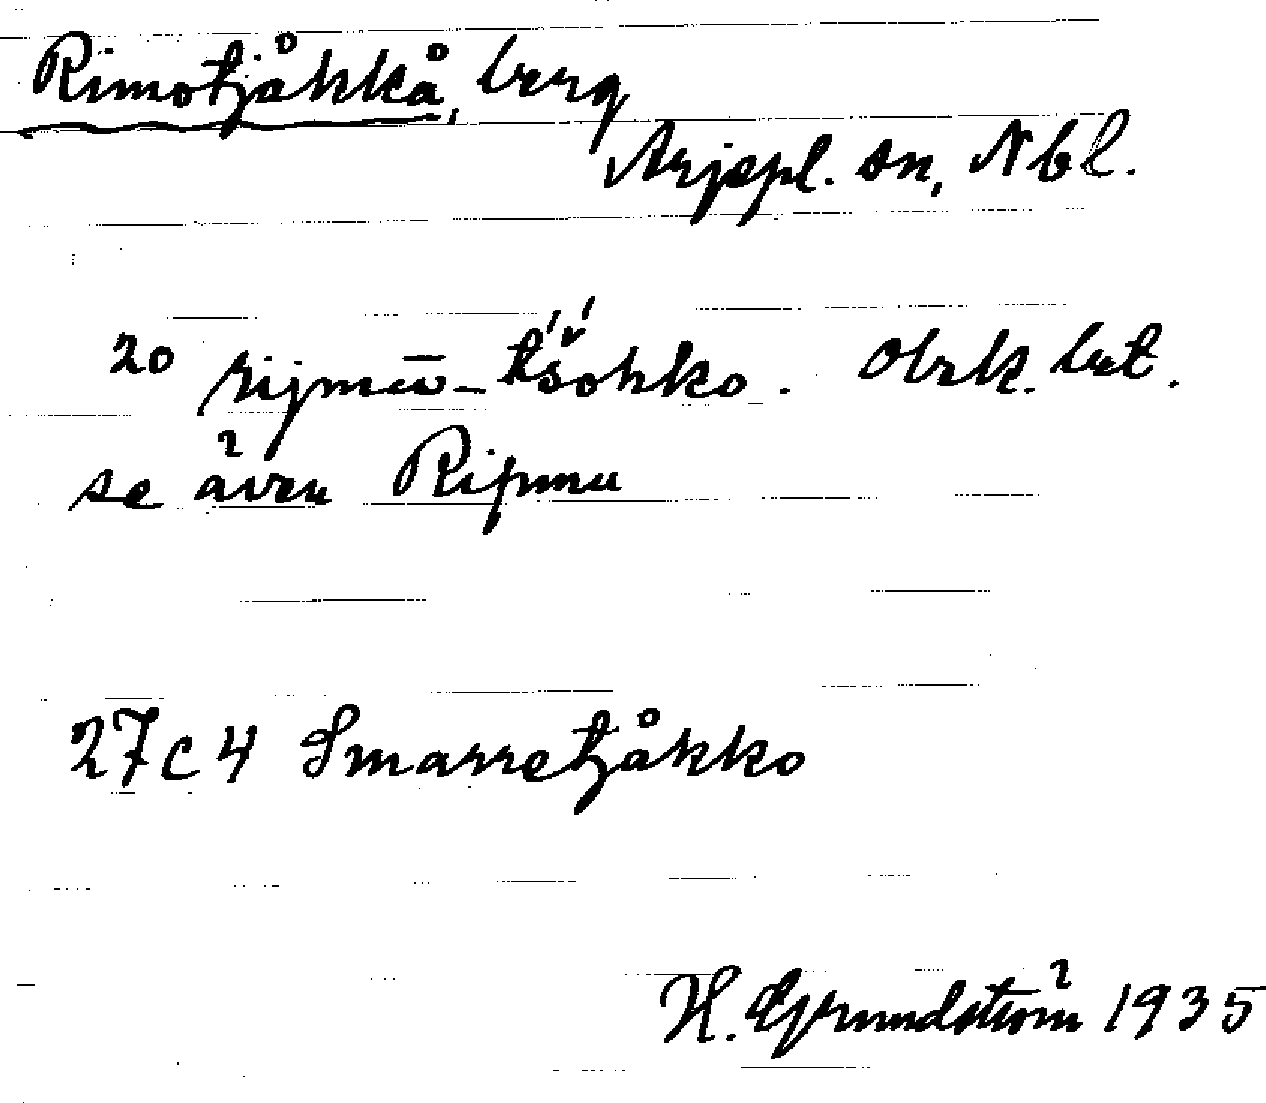 Rimotjåkkå, berg
Arjepl. sn, Nbl.
20 rijmū-t́š́ohko. Obek. bet.
se även Rijmu
27C4 Smarretjåkko
H. Grundström 1935